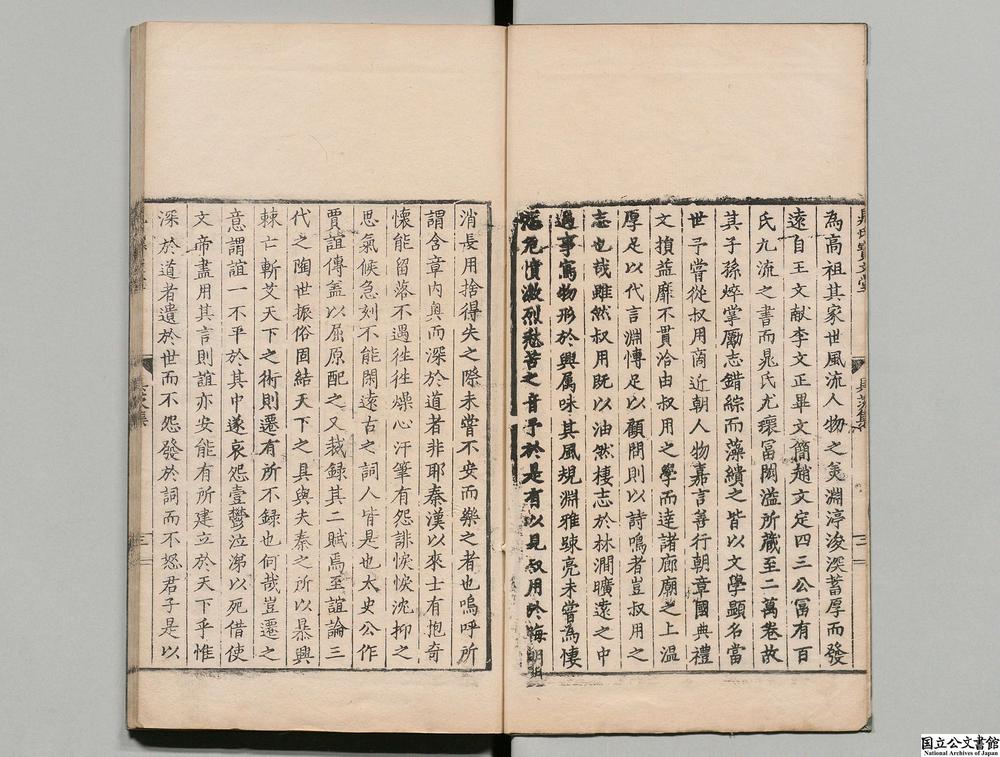 為高祖其家世風流人物之美淵渟浚深蓄厚而發
遠自王文献李文正畢文簡趙文定四三公冨有百
氏九流之書而晁氏尤瓌冨閎溢所蔵至二萬卷故
其子孫焠掌勵志錯綜而藻繢之皆以文學顯名當
世予嘗從叔用商近朝人物嘉言善行朝章國典禮
文損益靡不貫洽由叔用之學而逹諸廊廟之上温
厚足以代言淵愽足以顧問則以詩鳴者豈叔用之
志也哉雖然叔用既以油然棲志於林澗曠遠之中
遇事寫物形於興属味其風規淵雅踈亮未嘗為悽
危憤激烈愁苦之音予於是有以見叔用於晦明
消長用捨得失之際未嘗不安而樂之者也嗚呼所
謂含章内奥而深於道者非耶秦漢以來士有抱奇
懐能留落不遇徃徃燥心汗筆有怨誹悢悢沈抑之
思氣候急刻不能閑遠古之詞人皆是也太史公作
賈誼傳盖以屈原配之又裁録其二賦焉至誼論三
代之陶世振俗固結天下之具與夫秦之所以㬥興
棘亡斬艾天下之術則遷有所不録也何哉豈遷之
意謂誼一不平於其中遂哀怨壹鬱泣涕以死借使
文帝盡用其言則誼亦安能有所建立於天下乎惟
深於道者遺於世而不怨發於詞而不怒君子是以
国立公文書館
National Archives of Japan